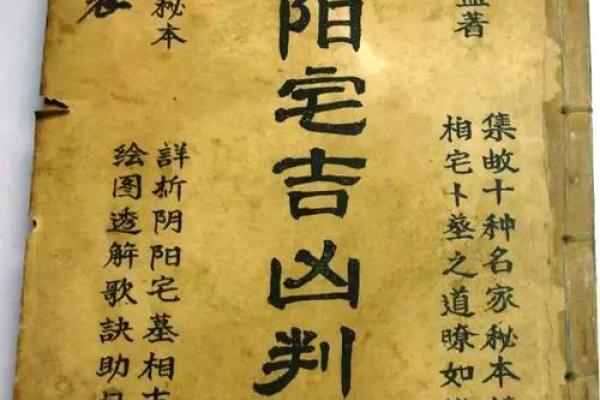 著
集十种名家秘本
相宅卜之道瞭如
阳宅吉凶判
秘本
詳析阴阳宅墓相
绘图透解歌訣助